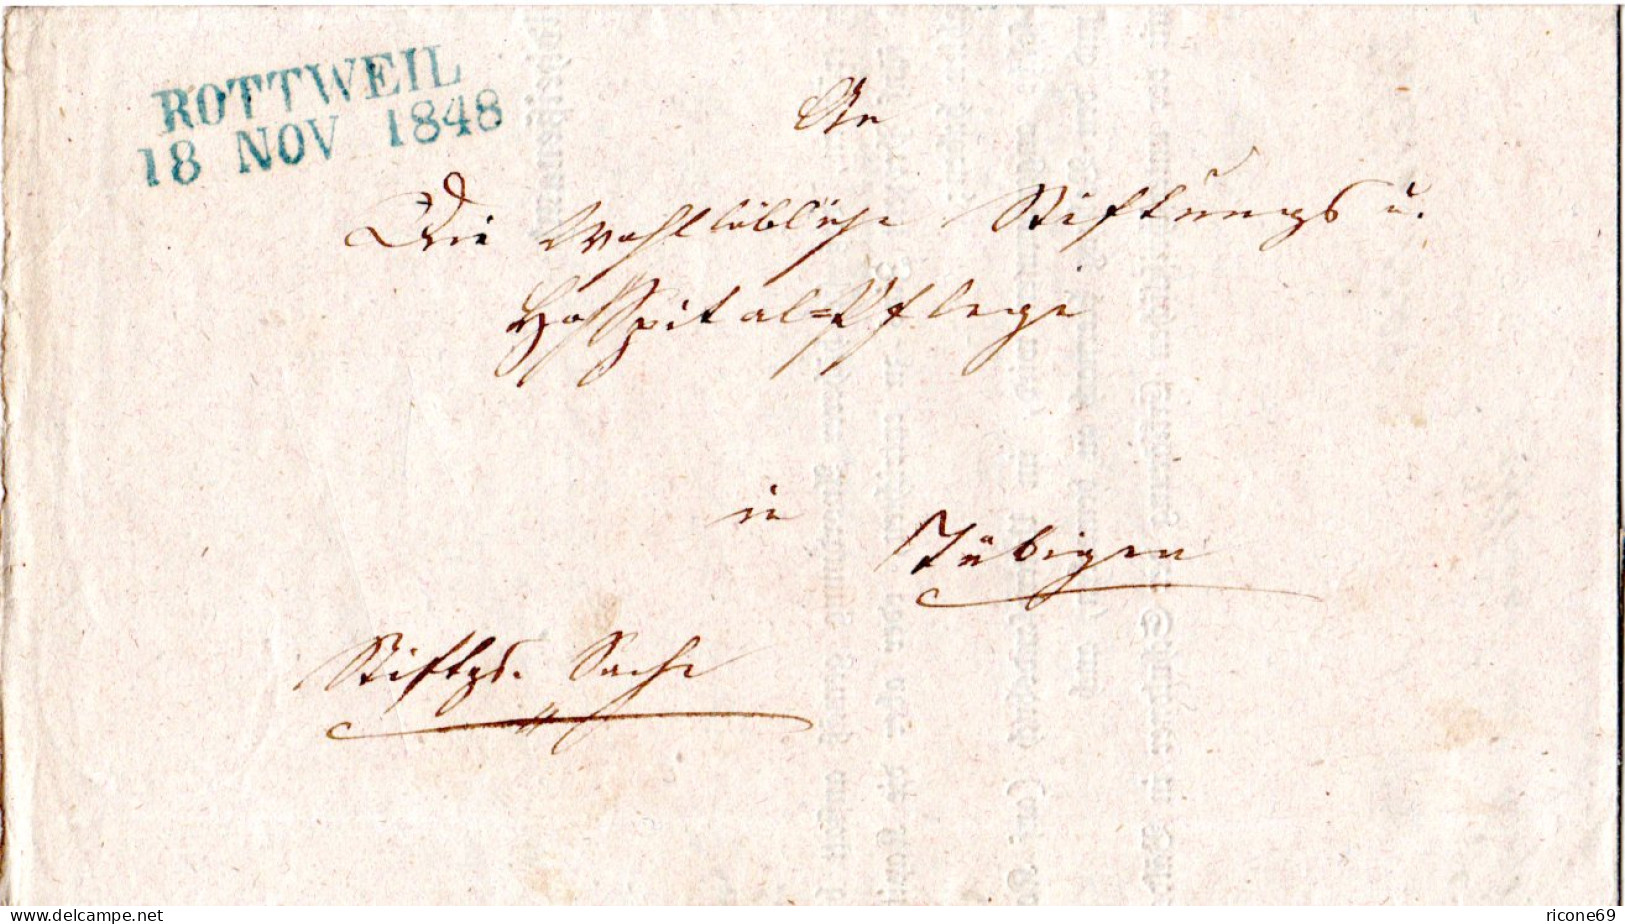 ROTTWEIL
18 NOV 1848
An
Die Wohllöbliche Stiftungs u.
Hospital=Pflege
in Tübigen
Stiftgs. Sache
www.delcampe.net
ricone69